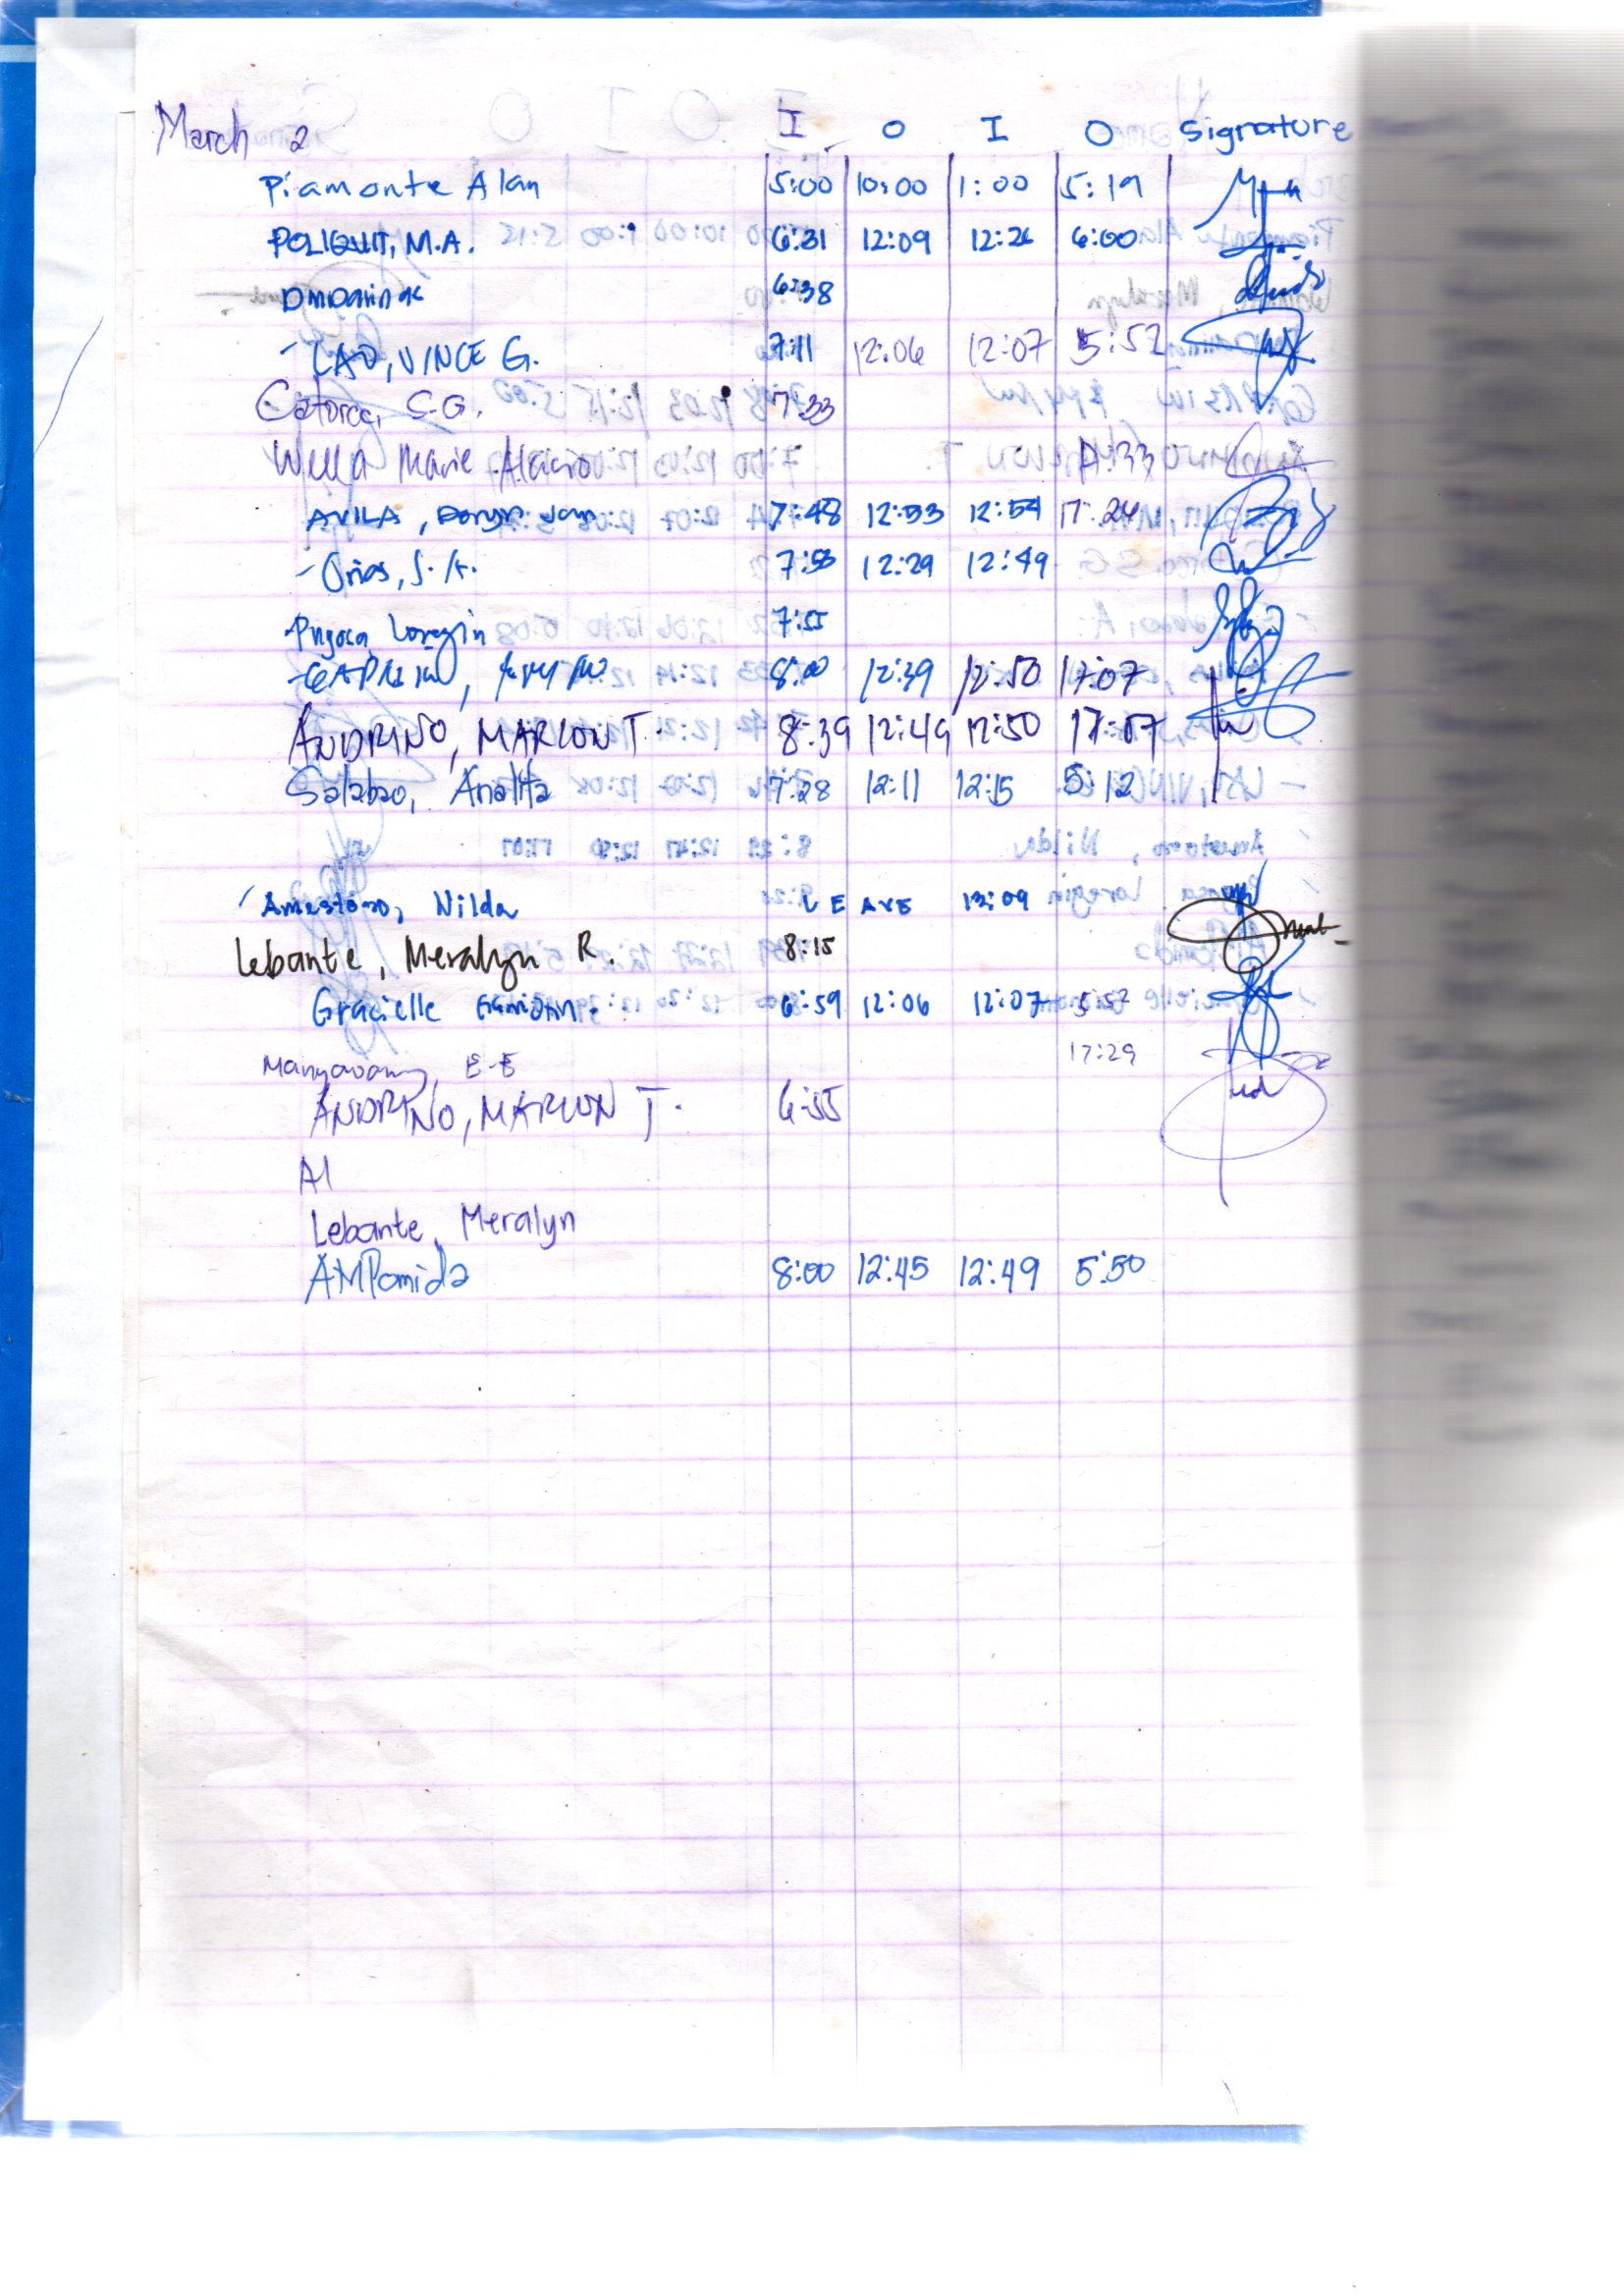 March 2 I O I O Signature
Piamonte Alan 5:00 10:00 1:00 5:19
POLIQUIT, M.A. 6:31 12:09 12:26 6:00
6:38
- LAO, VINCE G. 7:11 12:06 12:07 5:52
Catorce, S.G. 7:33
Willa Marie Alacio 17:33
AVILA, 7:48 12:53 12:54 17:24
- Orias, S.A. 7:53 12:29 12:49
Pugoca Loregin 7:55
8:00 12:39 12:50 17:07
ANDRINO, MARLON T. 8:39 12:49 12:50 17:07
Salabao, Analita 7:28 12:11 12:15 5:12
Amestoso, Nilda LEAVE 13:09
Lebante, Meralyn R. 8:15
Gracielle 6:59 12:06 12:07 5:52
E.E 17:29
ANDRINO, MARLON T. 6:55
Al
Lebante, Meralyn
AMPomida 8:00 12:45 12:49 5:50